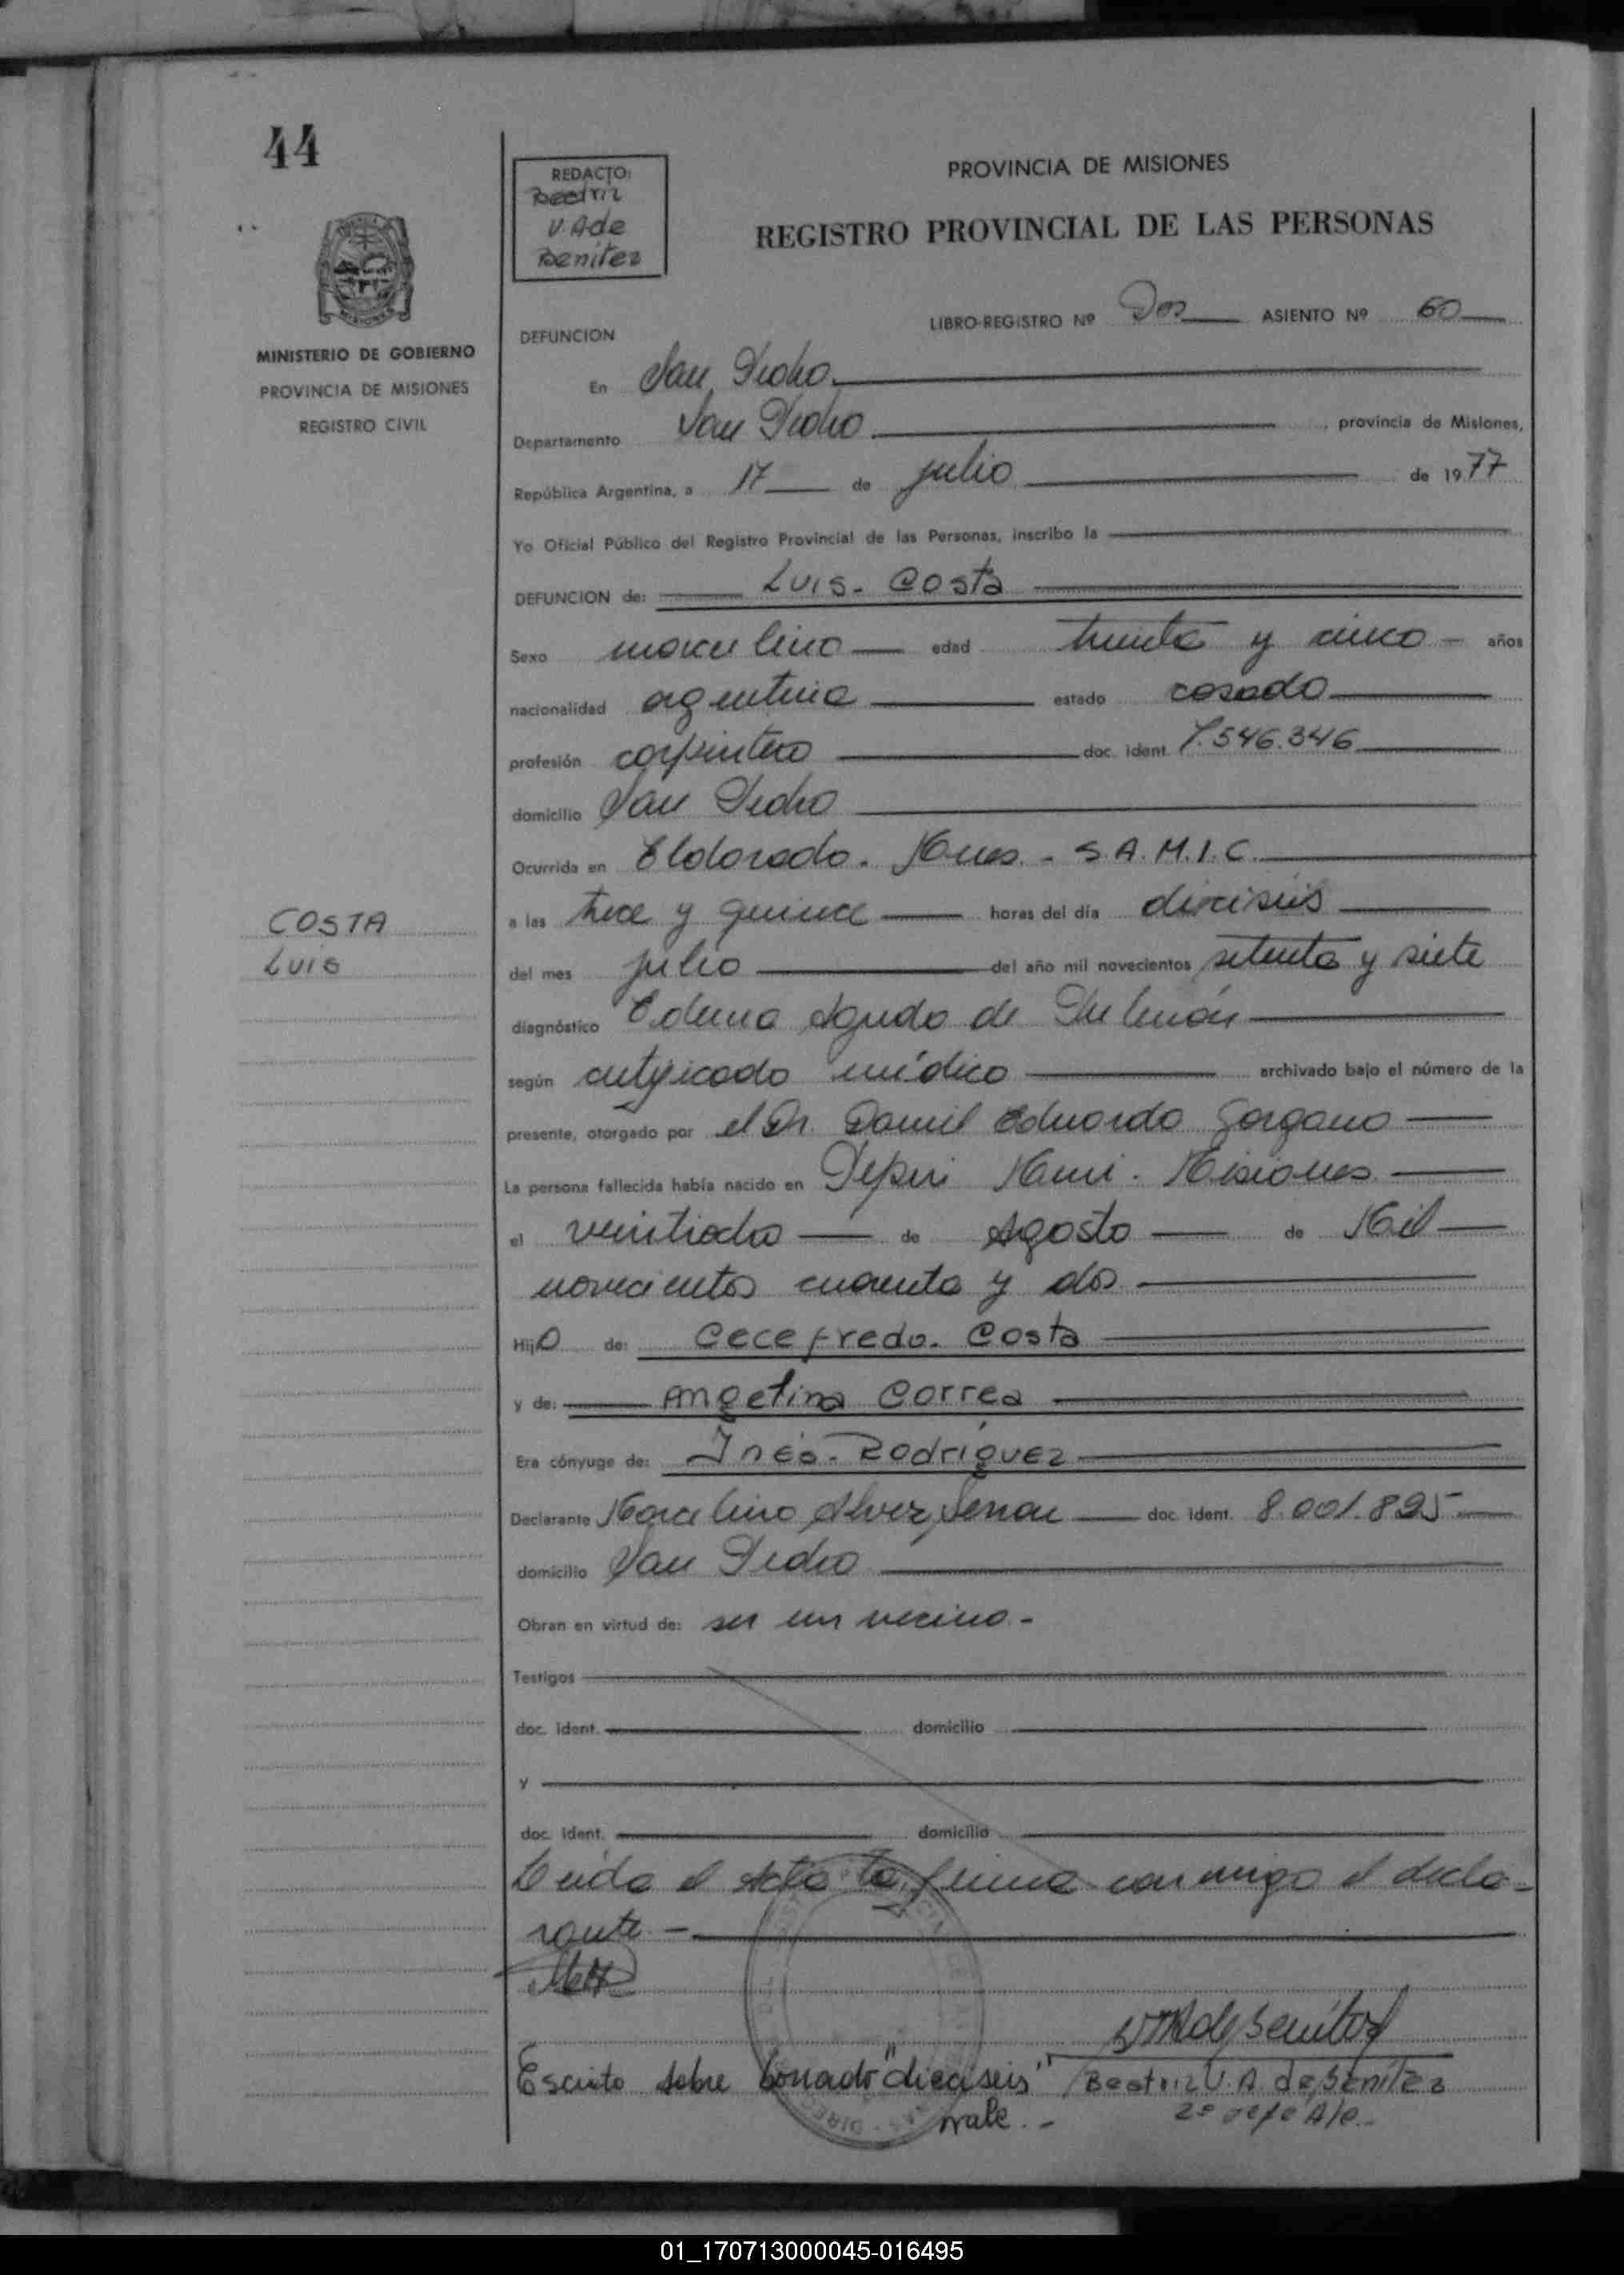 44
REDACTO:
Beatriz
V. A de
Benitez
PROVINCIA DE MISIONES
REGISTRO PROVINCIAL DE LAS PERSONAS
MINISTERIO DE GOBIERNO
PROVINCIA DE MISIONES
REGISTRO CIVIL
DEFUNCION
LIBRO-REGISTRO Nº Dos ASIENTO Nº 60
En San Pedro
Departamento San Pedro, provincia de Misiones,
República Argentina, a 17 de julio de 1977
Yo Oficial Público del Registro Provincial de las Personas, inscribo la
DEFUNCION de: Luis - Costa
Sexo masculino edad treinta y cinco - años
nacionalidad argentina estado casado
profesión carpintero doc. ident. 7.546.346
domicilio San Pedro
Ocurrida en Eldorado. Mnes. - S.A.M.I.C.
a las trece y quince horas del día dieciseis
COSTA
LUIS
del mes julio del año mil novecientos setenta y siete
diagnóstico Edema Agudo de Pulmón
según certificado médico archivado bajo el número de la
presente, otorgado por el Dr. Daniel Eduardo Gorgano
La persona fallecida había nacido en Pepiri Mini. Misiones
el veintiocho de Agosto de Mil
novecientos cuarenta y dos
Hijo de: Cecefredo. Costa
y de: Angelina Correa
Era cónyuge de: Inés. Rodríguez
Declarante Marcelino Alvez doc. ident. 8.001.895
domicilio San Pedro
Obran en virtud de: ser un vecino. -
Testigos
doc. ident. domicilio
y
doc. ident. domicilio
Leida el Acta la firma con migo el decla-
rante. -
Escrito sobre borrado "dieciseis"
vale. -
Beatriz V. A. de Benitez